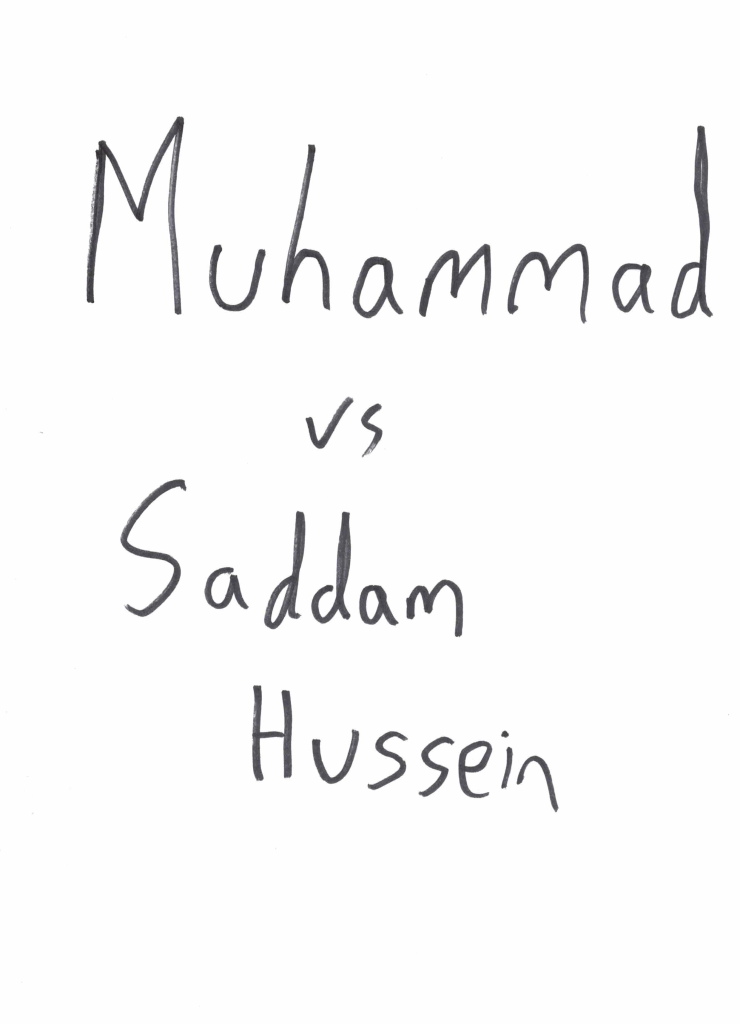 Muhammad
vs
Saddam
Hussein